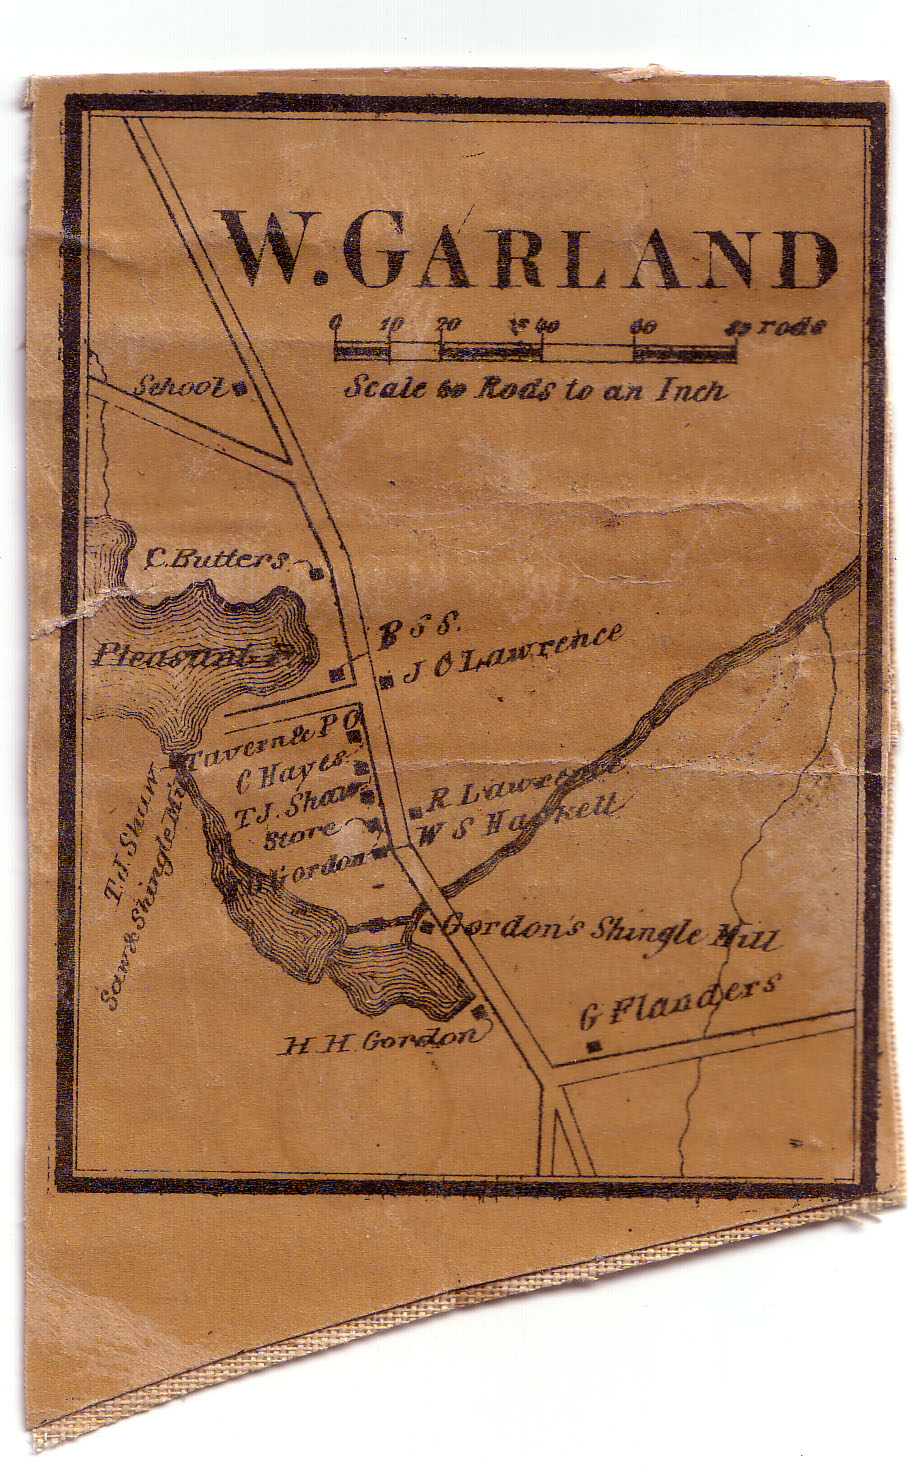 W. GARLAND
0 10 20 40 60 80 rods
Scale 60 Rods to an Inch
School
C. Butters
B S S.
J O Lawrence
Pleasant P.
Tavern & P O
C Hayes
T.J. Shaw
Store
Gordon
R Lawrence
W S Haskell
T.J. Shaw
Saw & Shingle Mill
Gordon's Shingle Mill
G Flanders
H H Gordon